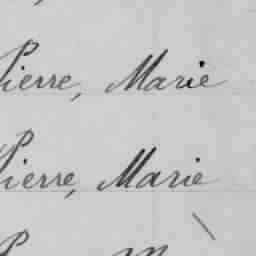 Pierre, Marie
Pierre, Marie